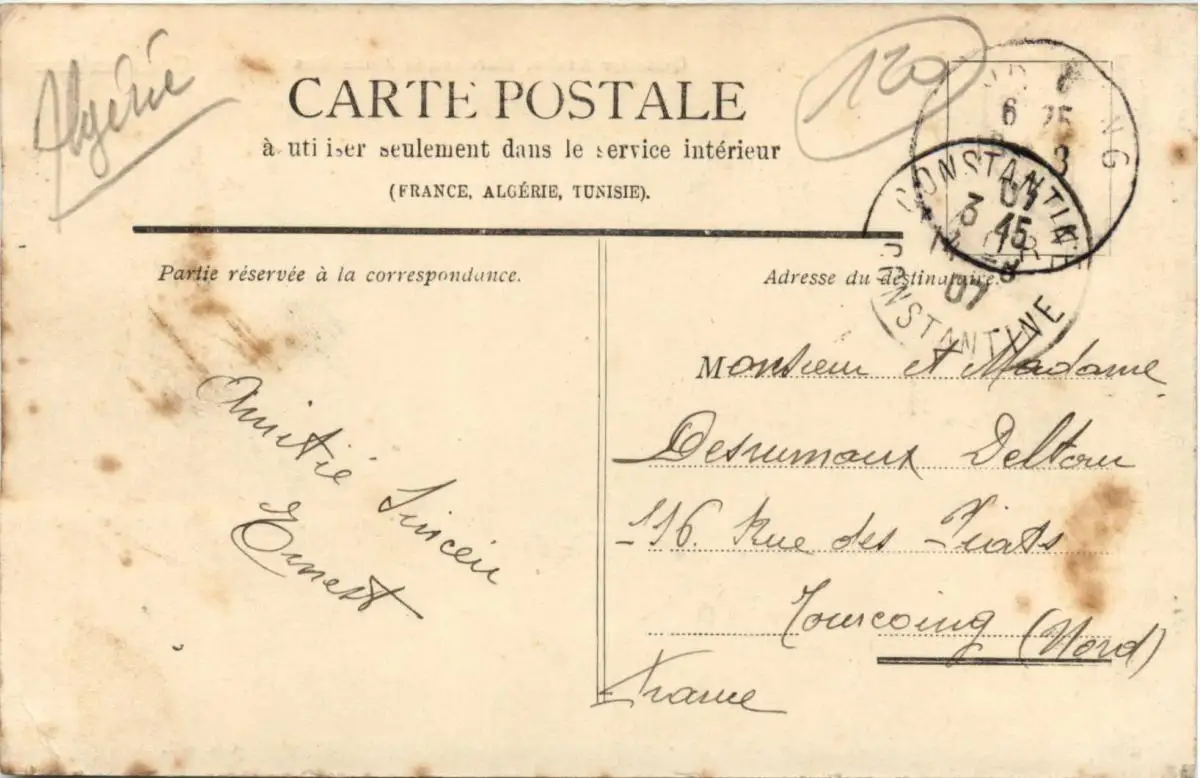 Algérie
120
CARTE POSTALE
à utiliser seulement dans le service intérieur
(FRANCE, ALGÉRIE, TUNISIE).
Partie réservée à la correspondance.
Adresse du destinataire.
6 25
CONSTANTINE
3 45
14 -3
07
CONSTANTINE
Monsieur et Madame
Desrumaux Deltour
116 Rue des Piats
Tourcoing (Nord)
France
Amitié Sincère
Ernest